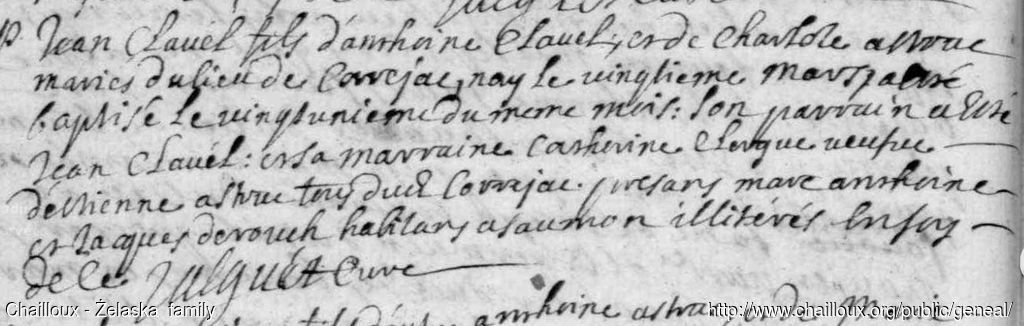 Jean Clavel fils d'anthoine Clavel, et de Charlote astruc
mariés du lieu de Correjac, nay le vingtieme mars, a esté
baptisé le vingtunieme du meme mois: son parrain a esté
Jean Clavel: et sa marraine Catherine Clergue veufve
d'estienne astruc tous dud Correjac. presans marc anthoine
et Jacques derouch habitans a saumon illiterés en foy
de ce Curé
Chailloux - Želaska family
http://www.chailloux.org/public/geneal/
anthoine astruc